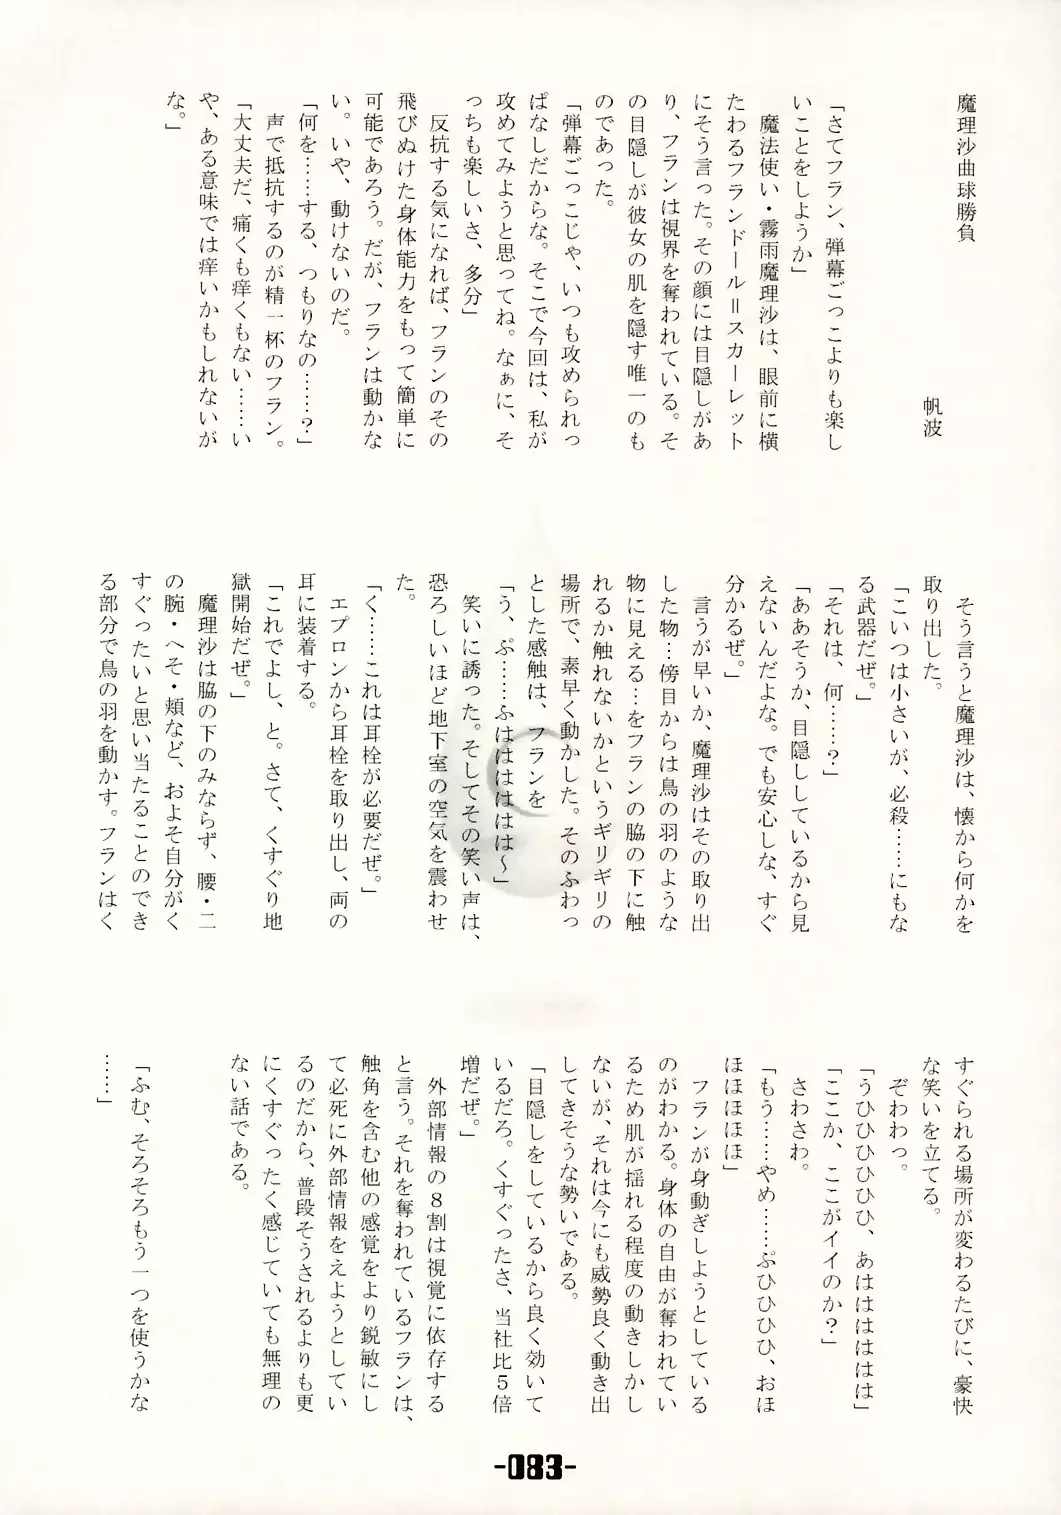 魔理沙曲球勝負
帆波
「さてフラン、弾幕ごっこよりも楽し
いことをしようか」
魔法使い・霧雨魔理沙は、眼前に横
たわるフランドール＝スカーレット
にそう言った。その顔には目隠しがあ
り、フランは視界を奪われている。そ
の目隠しが彼女の肌を隠す唯一のも
のであった。
「弾幕ごっこじゃ、いつも攻められっ
ぱなしだからな。そこで今回は、私が
攻めてみようと思ってね。なぁに、そ
っちも楽しいさ、多分」
反抗する気になれば、フランのその
飛びぬけた身体能力をもって簡単に
可能であろう。だが、フランは動かな
い。いや、動けないのだ。
「何を……する、つもりなの……？」
声で抵抗するのが精一杯のフラン。
「大丈夫だ、痛くも痒くもない……い
や、ある意味では痒いかもしれないが
な。」
そう言うと魔理沙は、懐から何かを
取り出した。
「こいつは小さいが、必殺……にもな
る武器だぜ。」
「それは、何……？」
「ああそうか、目隠ししているから見
えないんだよな。でも安心しな、すぐ
分かるぜ。」
言うが早いか、魔理沙はその取り出
した物…傍目からは鳥の羽のような
物に見える…をフランの脇の下に触
れるか触れないかというギリギリの
場所で、素早く動かした。そのふわっ
とした感触は、フランを
「う、ぷ……ふはははははは～」
笑いに誘った。そしてその笑い声は、
恐ろしいほど地下室の空気を震わせ
た。
「く……これは耳栓が必要だぜ。」
エプロンから耳栓を取り出し、両の
耳に装着する。
「これでよし、と。さて、くすぐり地
獄開始だぜ。」
魔理沙は脇の下のみならず、腰・二
の腕・へそ・頬など、およそ自分がく
すぐったいと思い当たることのでき
る部分で鳥の羽を動かす。フランはく
すぐられる場所が変わるたびに、豪快
な笑いを立てる。
ぞわわっ。
「うひひひひひひ、あはははははは」
「ここか、ここがイイのか？」
さわさわ。
「もう……やめ……ぷひひひひ、おほ
ほほほほほ」
フランが身動ぎしようとしている
のがわかる。身体の自由が奪われてい
るため肌が揺れる程度の動きしかし
ないが、それは今にも威勢良く動き出
してきそうな勢いである。
「目隠しをしているから良く効いて
いるだろ。くすぐったさ、当社比５倍
増だぜ。」
外部情報の８割は視覚に依存する
と言う。それを奪われているフランは、
触角を含む他の感覚をより鋭敏にし
て必死に外部情報をえようとしてい
るのだから、普段そうされるよりも更
にくすぐったく感じていても無理の
ない話である。
「ふむ、そろそろもう一つを使うかな
……」
-083-